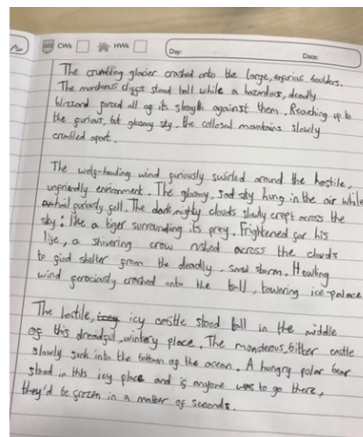 CW HW Day: Date:
The crumbling glacier crashed onto the large, enormous boulders.
The mountainous cliffs stood tall while a hazardous, deadly
blizzard forced all of its strength against them. Reaching up to
the furious, fat gloomy sky, the collosal mountains slowly
crumbled apart.
The wolf-howling wind furiously swirled around the hostile,
unfriendly environment. The gloomy, sad sky hung in the air while
hail furiously fell. The dark, mighty clouds slowly crept across the
sky; like a tiger surrounding its prey. Frightened for his
life, a shivering crow rushed across the clouds
to find shelter from the deadly, snow storm. Howling
wind ferociously crashed onto the tall, towering ice-palace
The hostile, icy castle stood tall in the middle
of this dreadful, wintery place. The monsterous, bitter castle
slowly sunk into the bottom of the ocean. A hungry polar bear
stood in this icy place and if anyone was to go there,
they'd be frozen in a matter of seconds.